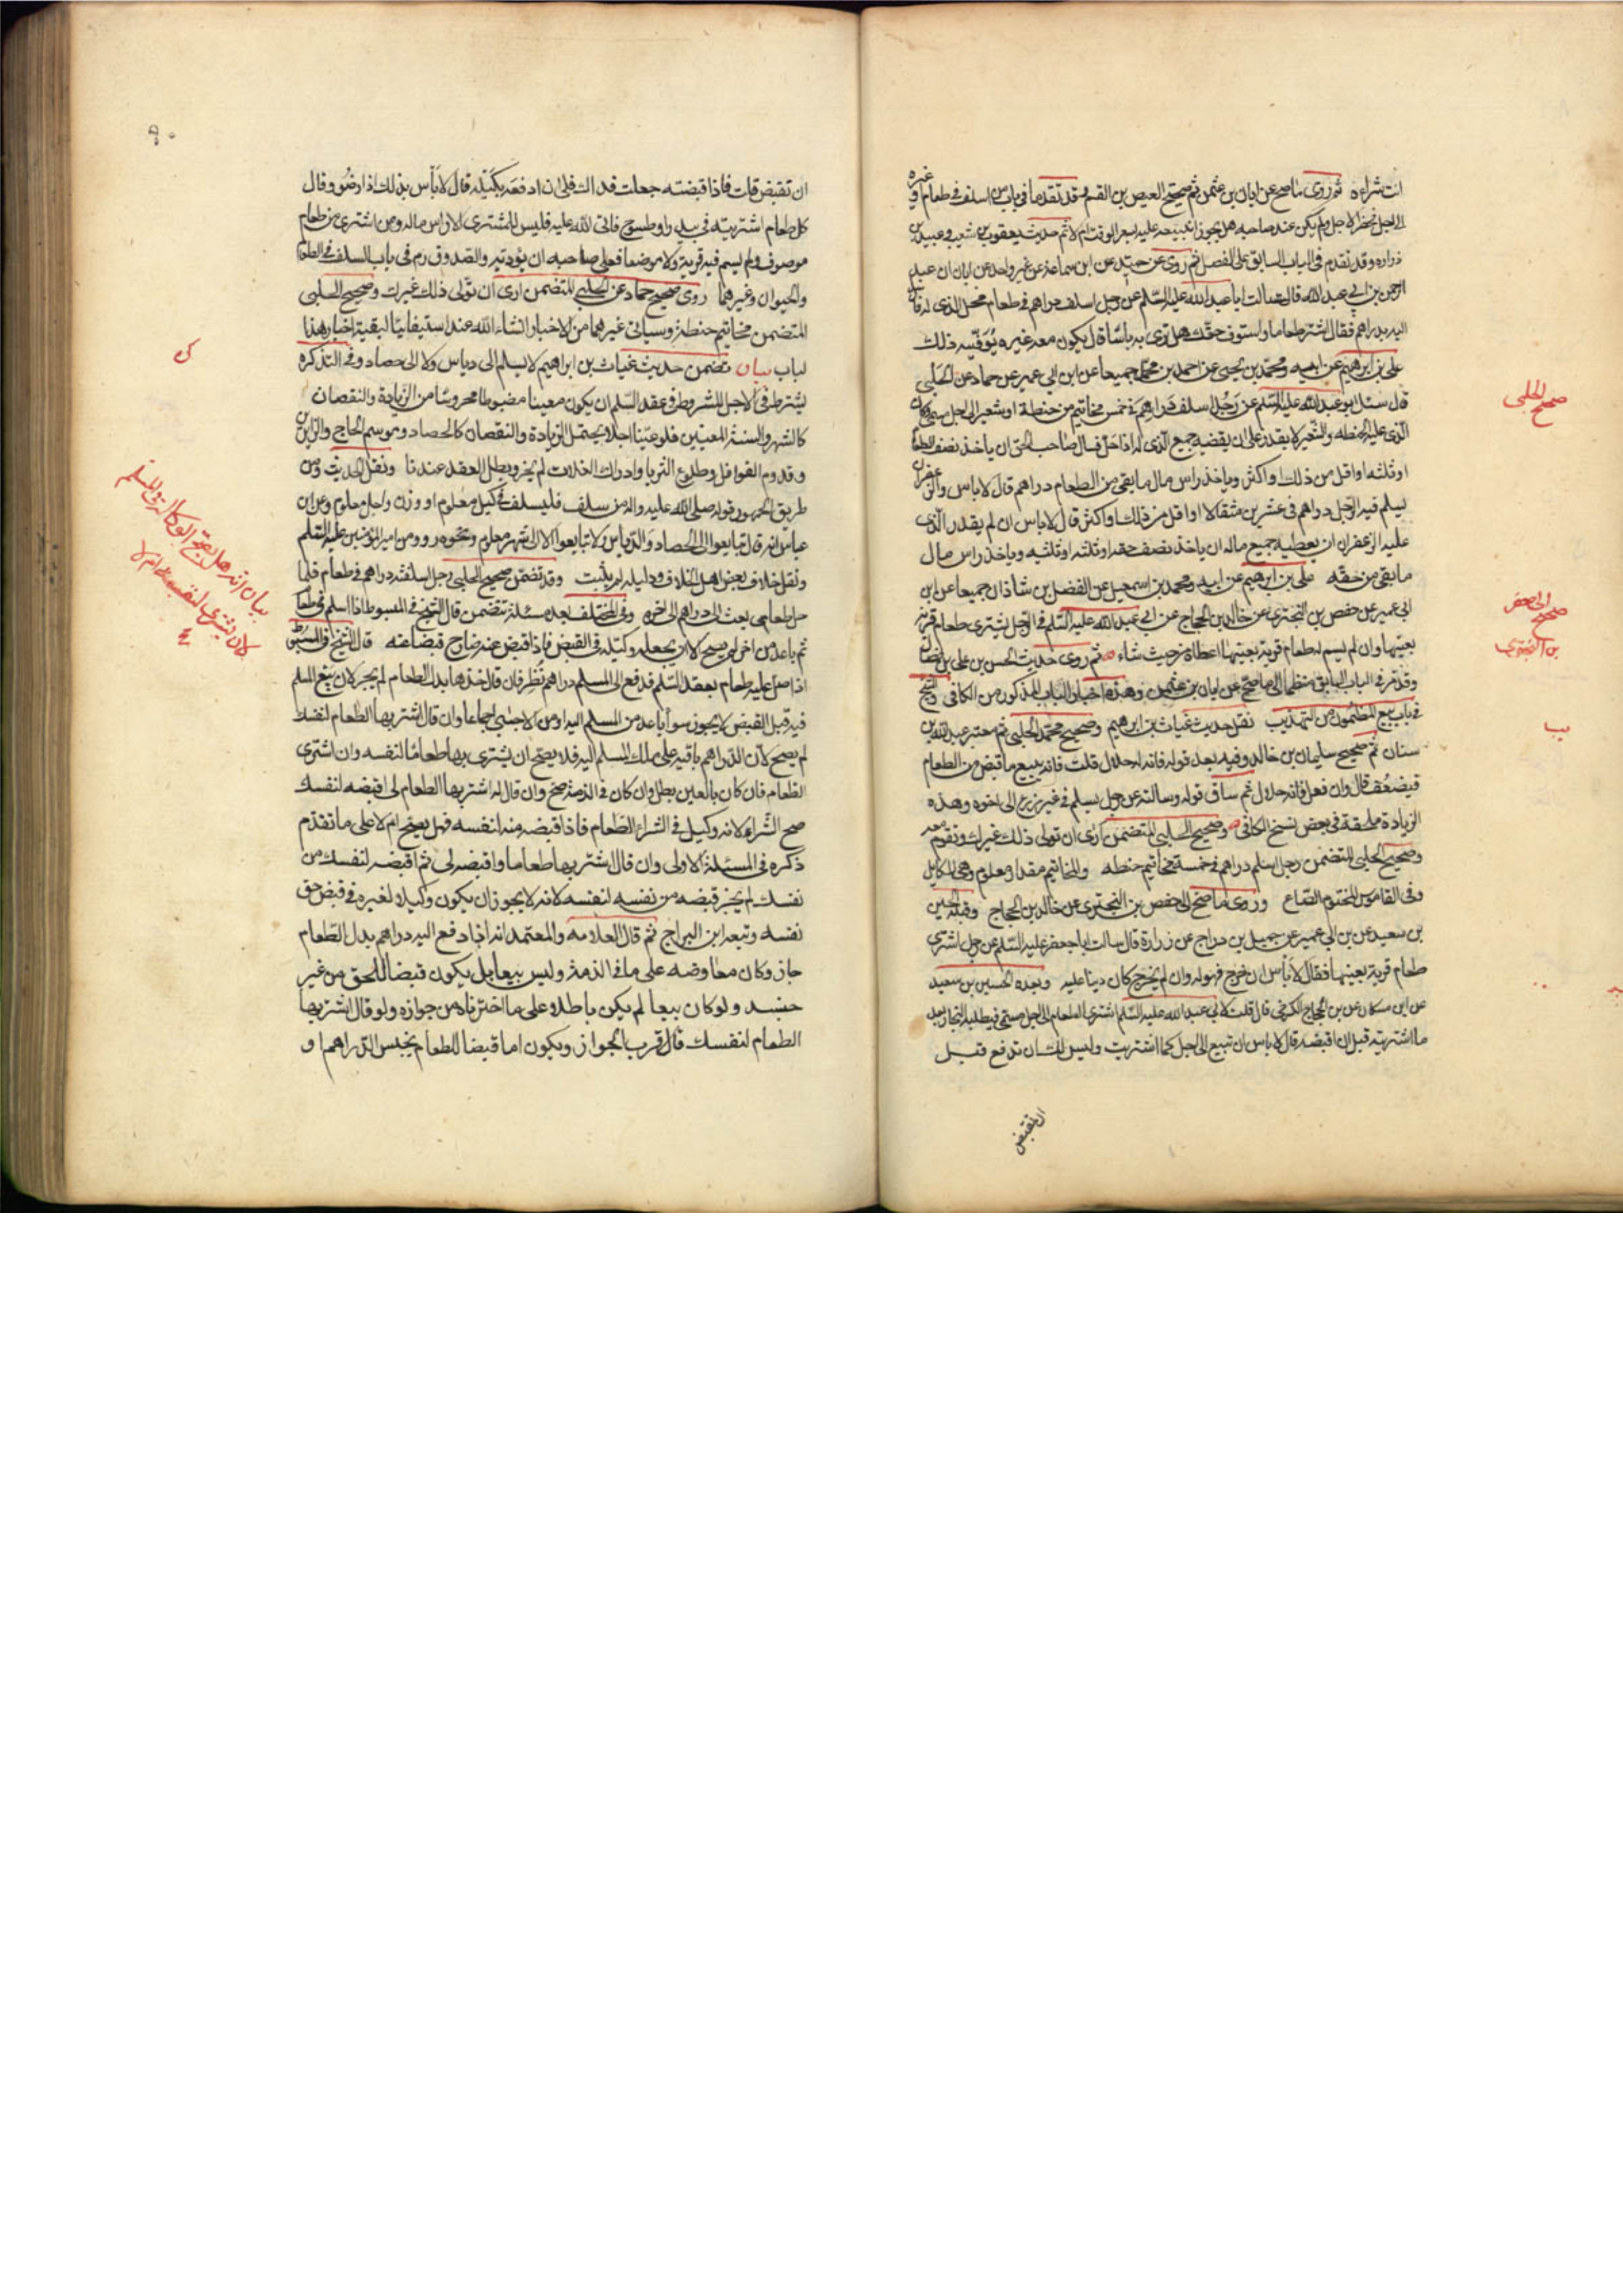 انت شراءه ثم روى ما صح عن ابان بن عثمن ثم صحيح العيص بن القسم وقد تقدما فى باب من اسلف فى طعام او غيره
الى اجل فحضر الاجل ولم يكن عند صاحبه هل يجوز ان يبيعه عليه بسعر الوقت ام لا ثم حديث يعقوب بن شعيب وعبيد بن
زراره وقد تقدم فى الباب السابق على الفصل ثم روى عن حميد عن ابن سماعة عن غير واحد عن ابان ان عبد
الرحمن بن ابى عبد الله قال سالت ابا عبد الله عليه السلم عن رجل اسلف دراهم فى طعام فحل الذى له فارسل
اليه بدراهم فقال اشتر طعاما واستوف حقك هل ترى به باسا قال يكون معه غيره يوفيه ذلك
على بن ابرهيم عن ابيه ومحمد بن يحيى عن احمد بن محمد جميعا عن ابن ابى عمير عن حماد عن الحلبى
قال سئل ابو عبد الله عليه السلم عن رجل اسلف دراهم فى خمس مخاتيم من حنطة او شعير الى اجل مسمى وكان
الذى عليه الحنطه والشعير لا يقدر على ان يقضيه جميع الذى له اذا حل فسال صاحب الحق ان ياخذ نصف الطعام
او ثلثه او اقل من ذلك او اكثر وياخذ راس مال ما بقى من الطعام دراهم قال لا باس والزعفران
يسلم فيه الرجل دراهم فى عشرين مثقالا او اقل من ذلك او اكثر قال لا باس ان لم يقدر الذى
عليه الزعفران ان يعطيه جميع ماله ان ياخذ نصف حقه او ثلثه او ثلثيه وياخذ راس مال
ما بقى من حقه على بن ابرهيم عن ابيه ومحمد بن اسمعيل عن الفضل بن شاذان جميعا عن ابن
ابى عمير عن حفص بن البخترى عن خالد بن الحجاج عن ابى عبد الله عليه السلم فى الرجل يشترى طعام قرية
بعينها وان لم يسم له طعام قرية بعينها اعطاه من حيث شاء ثم روى حديث الحسن بن على بن فضال
وقد مر فى الباب السابق منظما الى ما صح عن ابان بن عثمن وهذه اخبار الباب المذكور من الكافى والشيخ
فى باب بيع المضمون من التهذيب نقل حديث غياث بن ابرهيم وصحيح محمد الحلبى ثم معتبر عبد الله بن
سنان ثم صحيح سليمان بن خالد وفيه بعد قوله فانه حلال قلت فانه يبيع ما قبض من الطعام
فيضعف قال وان فعل فانه حلال ثم ساق قوله وسالته عن رجل يسلم فى غير زرع الى اخره وهذه
الزيادة ملحقة فى بعض نسخ الكافى وصحيح الحلبى المتضمن ارى ان تولى ذلك غيرك وتقوم معه
وصحيح الحلبى المتضمن رجل اسلم دراهم فى خمسة مخاتيم حنطه والمخاتيم مقدار معلوم وهى المكاييل
وفى القاموس المختوم الصاع وروى ما صح الى حفص بن البخترى عن خالد بن الحجاج وقبله الحسين
بن سعيد عن بن ابى عمير عن جميل بن دراج عن زرارة قال سالت ابا جعفر عليه السلم عن رجل اشترى
طعام قرية بعينها فقال لا بأس ان خرج فهو له وان لم يخرج كان دينا عليه وبعده الحسين بن سعيد
عن ابن مسكان عن بن الحجاج الكرخى قال قلت لابى عبد الله عليه السلم اشترى الطعام الى اجل مسمى فيطلبه التجار بعد
ما اشتريته قبل ان اقبضه قال لا باس ان تبيع الى اجل كما اشتريت وليس لك ان تدفع قبل
ان تقبض
صحيح الحلبى
صحيح الى حفص
بن البخترى
يب
٩٠
ان تقبض قلت فاذا قبضته جعلت فداك فلى ان ادفعه بكيله قال لا بأس بذلك اذا رضوا وقال
كل طعام اشتريته فى بيدر او طسوج فاتى الله عليه فليس للمشترى الا راس ماله ومن اشترى من طعام
موصوف ولم يسم فيه قرية ولا موضعا فعلى صاحبه ان يؤديه والصدوق رم فى باب السلف فى الطعام
والحيوان وغيرهما روى صحيح حماد عن الحلبى المتضمن ارى ان تولى ذلك غيرك وصحيح الحلبى
المتضمن مخاتيم حنطة وسياتى غيرهما من الاخبار انشاء الله عند استيفائنا لبقية اخبار هذا
الباب بيان تضمن حديث غياث بن ابراهيم لا يسلم الى دياس ولا الى حصاد وفى التذكره
يشترط فى الاجل المشروط فى عقد السلم ان يكون معينا مضبوطا محروسا من الزيادة والنقصان
كالشهر والسنة المعينين فلو عينا اجلا يحتمل الزيادة والنقصان كالحصاد وموسم الحاج والدياس
وقدوم القوافل وطلوع الثريا وادراك الغلات لم يجز وبطل العقد عندنا ونقل الحديث ومن
طريق الجمهور قوله صلى الله عليه واله من سلف فليسلف فى كيل معلوم او وزن واجل معلوم وعن ابن
عباس انه قال لا تبايعوا الى الحصاد والدياس ولا تبايعوا الا الى شهر معلوم ونحوه روو من امير المؤمنين عليه السلم
ونقل خلاف بعض اهل الخلاف ودليله لم يثبت وقد تضمن صحيح الحلبى رجل اسلفته دراهم فى طعام فلما
حل طعامى بعث الى دراهم الى اخره وفى المختلف بعد مسئلة تتضمن قال الشيخ فى المبسوط اذا اسلم فى طعام
ثم باعه من اخر لم يصح الا ان يجعله وكيله فى القبض فاذا قبض عنه صار ح قبضا عنه قال الشيخ فى المبسوط
اذا حل عليه طعام بعقد السلم فدفع الى المسلم دراهم نظر فان قال خذها بدل الطعام لم يجز لان بيع المسلم
فيه قبل القبض لا يجوز سوآ باعه من المسلم اليه او من الاجنبى اجماعا وان قال اشتر بها الطعام لنفسك
لم يصح لان الدراهم باقية على ملك المسلم اليه فلا يصح ان يشترى بها طعاما لنفسه وان اشترى
الطعام فان كان بالعين بطل وان كان فى الذمة صح وان قال له اشتر بها الطعام لى اقبضه لنفسك
صح الشراء لانه وكيل فى الشراء الطعام فاذا قبضه منه لنفسه فهل يصح ام لا على ما تقدم
ذكره فى المسئلة الاولى وان قال اشتر بها طعاما واقبضه لى ثم اقبضه لنفسك من
نفسك لم يجز قبضه من نفسه لنفسه لانه لا يجوز ان يكون وكيلا لغيره فى قبض حق
نفسه وتبعه ابن البراج ثم قال العلامه والمعتمد انه اذا دفع اليه دراهم بدل الطعام
جاز وكان معاوضه على ما فى الذمة وليس بيعا بل يكون قبضا للحق من غير
جنسه ولو كان بيعا لم يكن باطلا على ما اخترناه من جوازه ولو قال اشتر بها
الطعام لنفسك فالاقرب الجواز ويكون اما قبضا للطعام بجنس الدراهم او
بيان انه هل يصح الوكاله فى المسلم
لان يشترى لنفسه ام لا